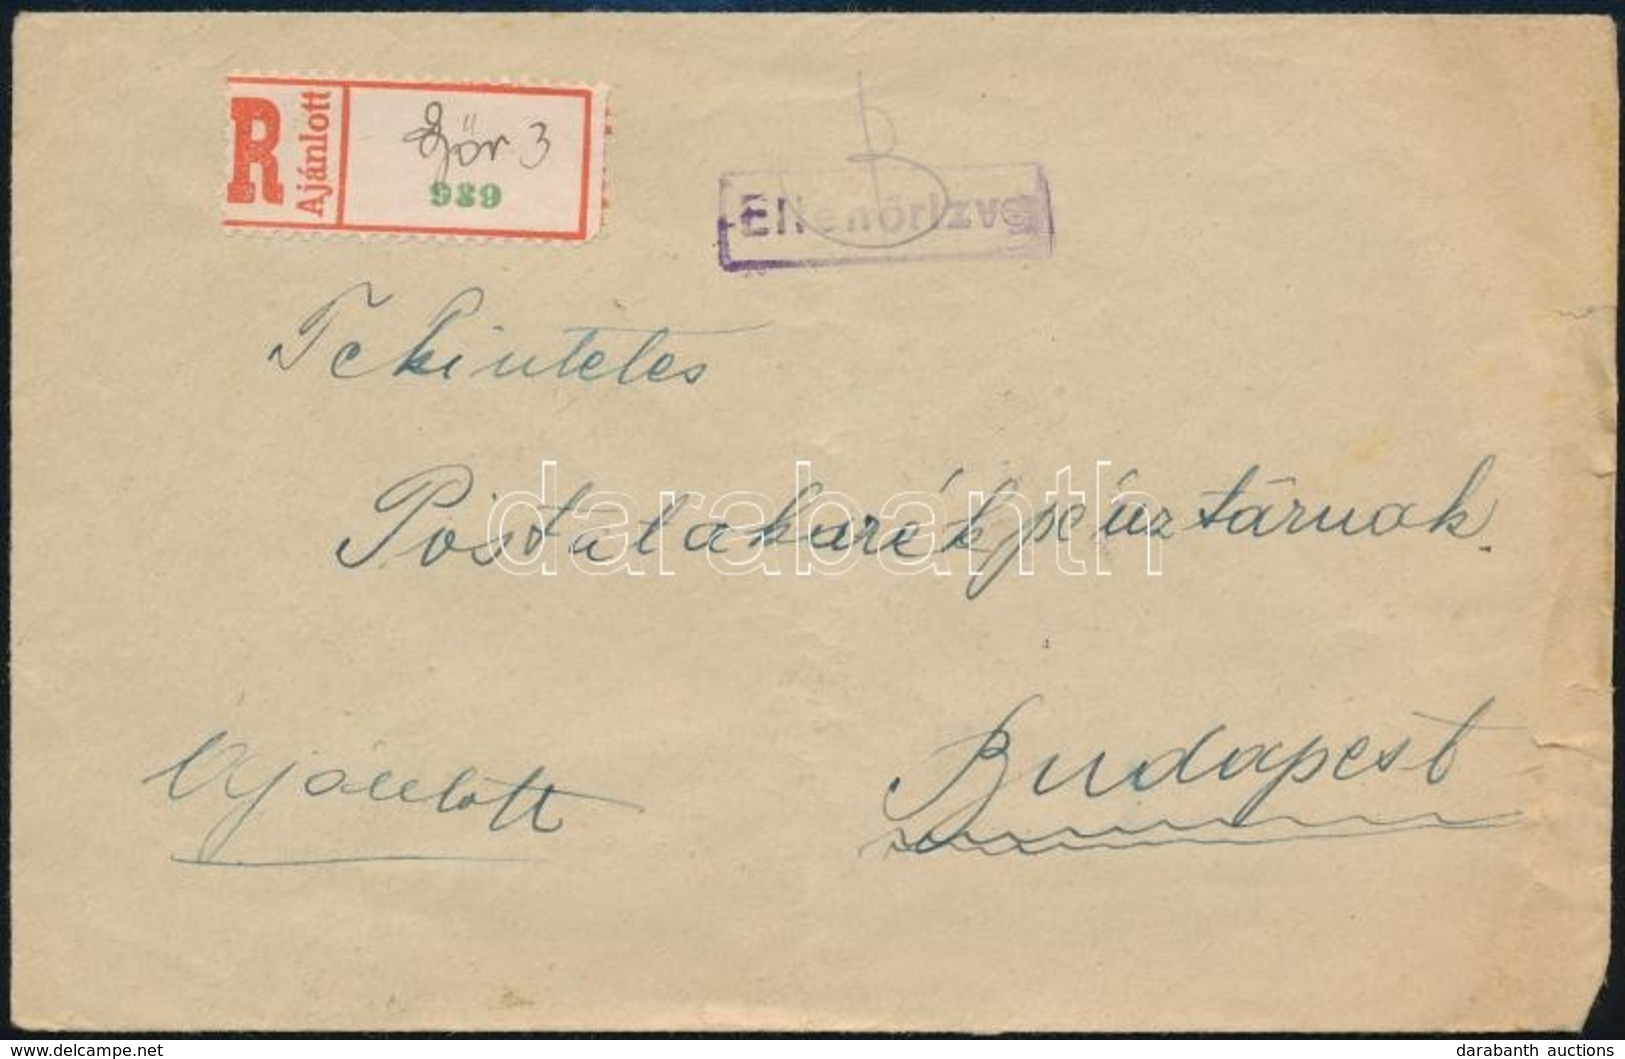 R
Ajánlott
Győr 3
986
Ellenőrizve
Tekintetes
Postatakarékpénztárnak
Ajánlott
Budapest
darabanth
www.delcampe.net
darabanth auctions